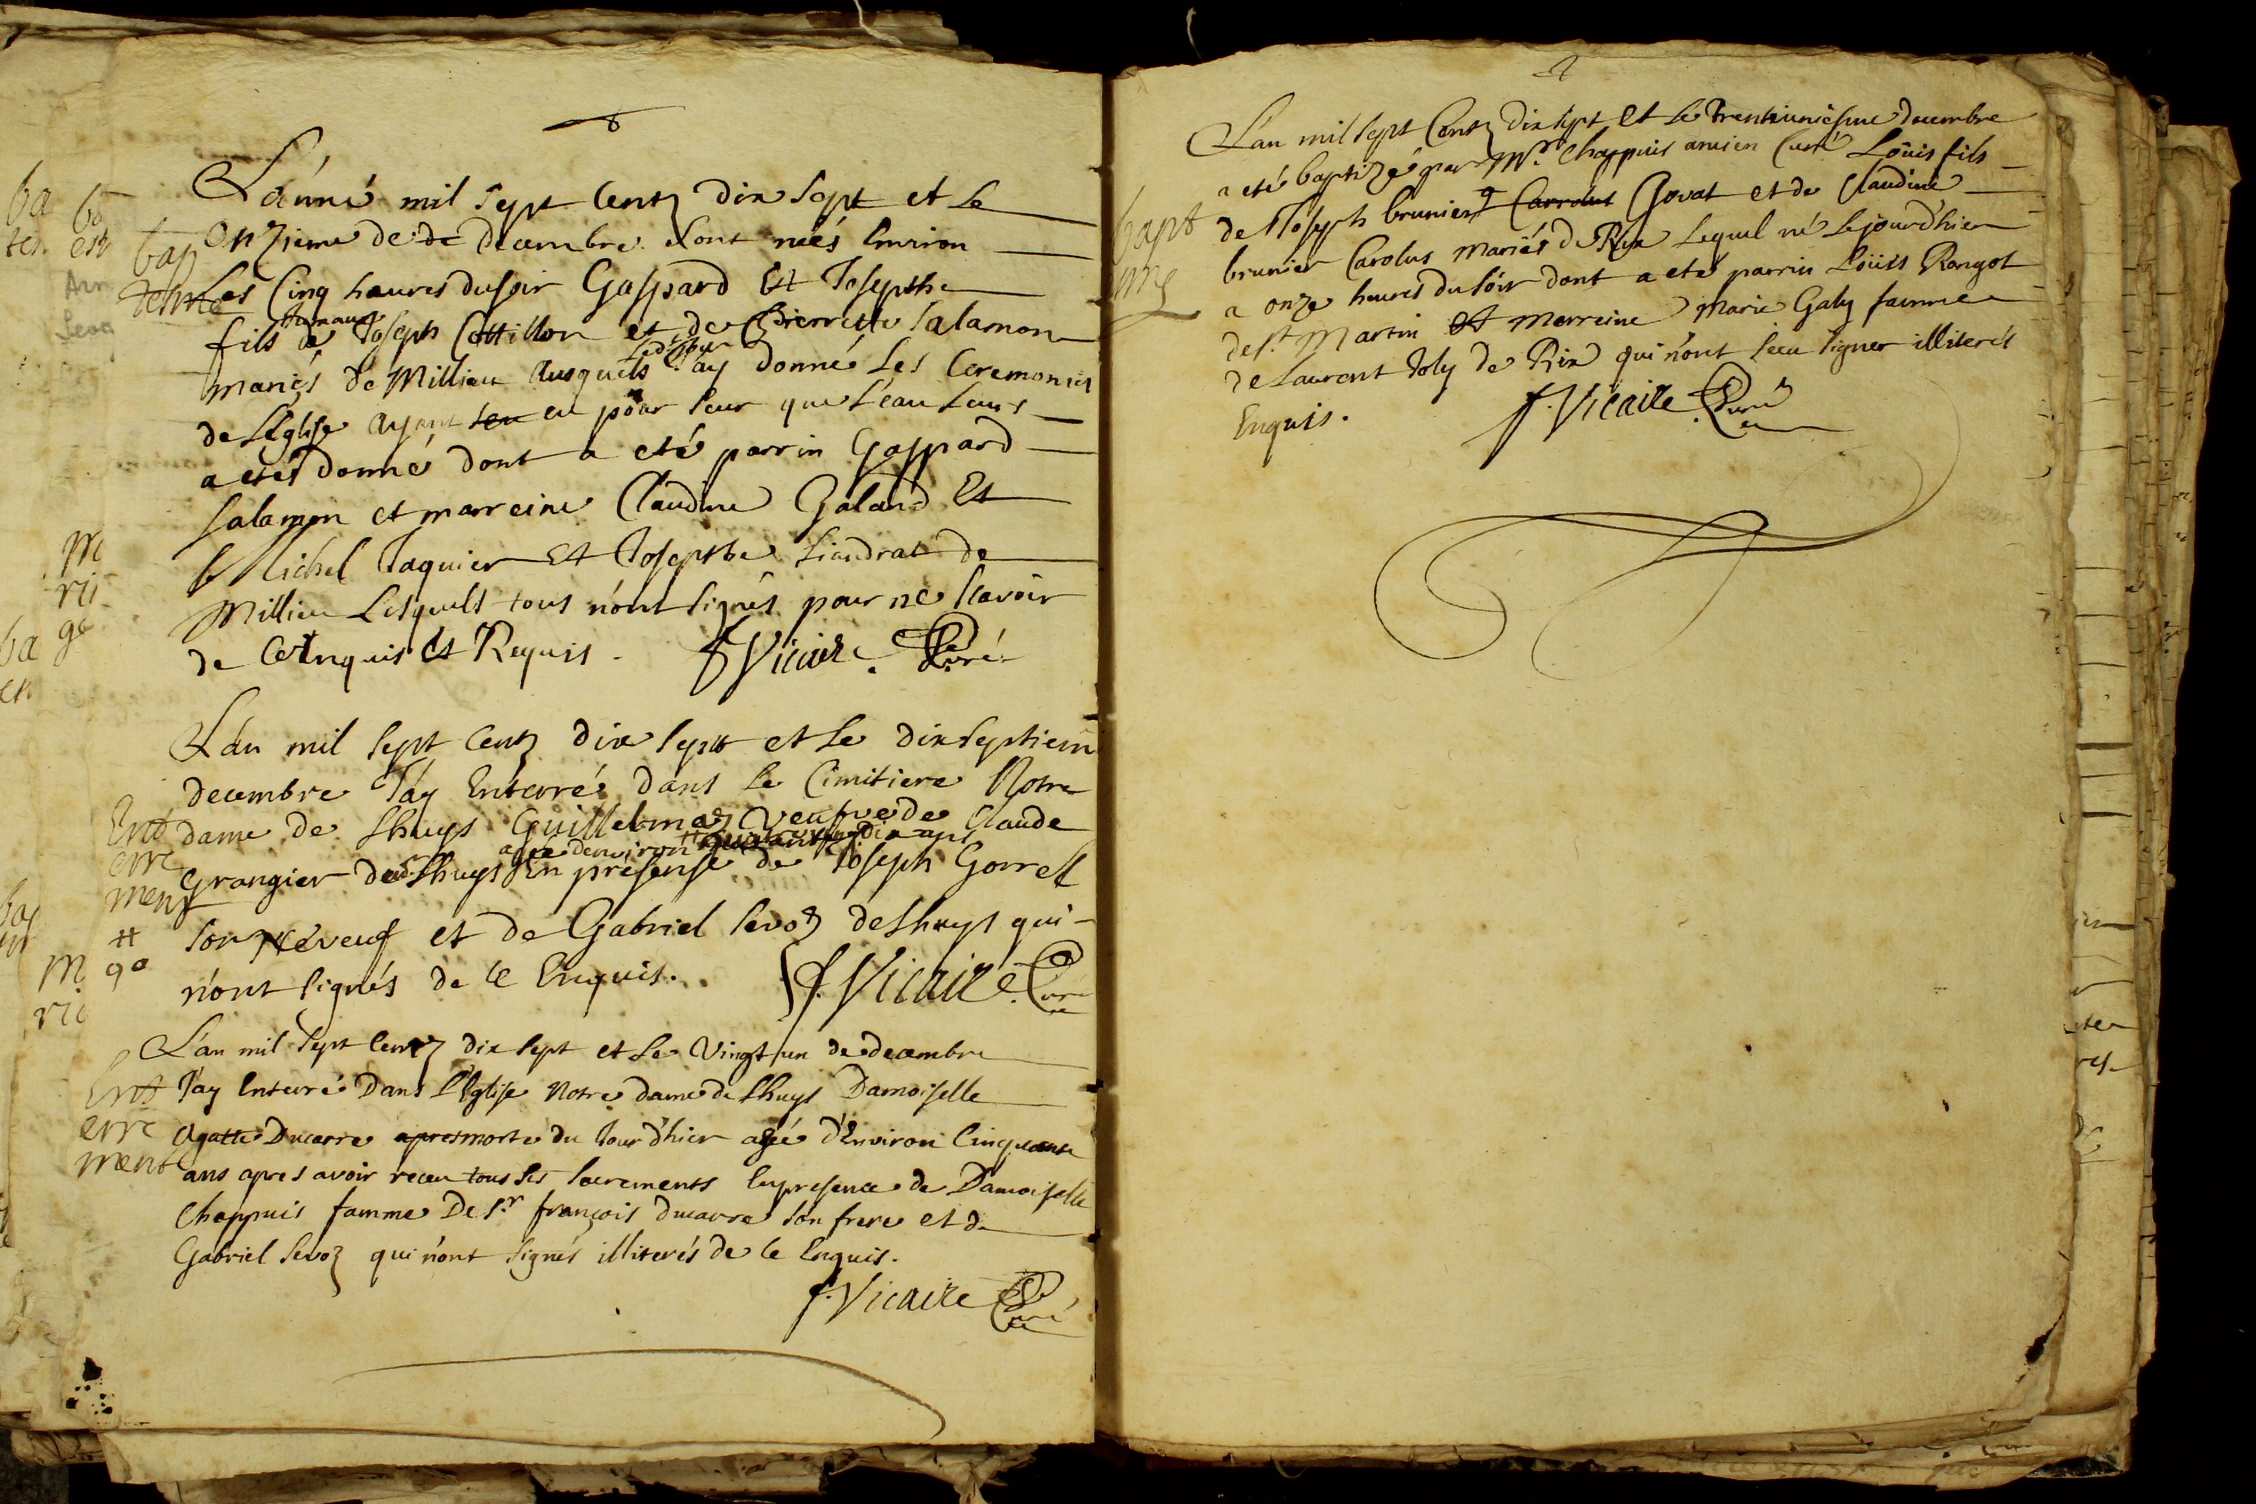 L'anné mil sept Centz dix sept et le
Onzieme de de decembre sont neés Environ
Les Cinq heures du soir Gaspard Et Josepthe
fils jumaux de Joseph Cottillon et de Pierrette Salamon
mariés de Millieu Ausquels Ledit jour J'ay donné Les Ceremonies
de L'Eglise ayant eu pour leur que L'eau Leurs
a etés donné dont a eté parrin Gaspard
Salamon et marreine Claudine Galand Et
Michel Jaquier Et Josepthe Liandrat de
Millieu Lesquels tous n'ont signés pour ne scavoir
de Ce Enquis Et Requis. f Vicaire. Curé
bap
tesme
L'an mil sept Centz dix sept et le dix septiem
decembre J'ay Enterré dans le Cimitiere Notre
dame de Lhuys Guillelmaz Veufve de Claude
agée denviron # dix ans
Grangier dud. Lhuys En presense de Joseph Gorrel
son Neveuf et de Gabriel Sevoz de Lhuys qui
n'ont signés de Ce Enquis. f. Vicaire. Curé
Ent
erre
ment
#
90
L'an mil sept Centz dix sept et le Vingt un de decembre
J'ay Enterré Dans L'Eglise Notre dame de Lhuys Damoiselle
Agatte Ducarre apres morte du Jour d'hier agée d'Environ Cinquante
ans apres avoir receu tous les sacrements En presence de Damoiselle
Chappuis famme De Sr. françois ducarre son frere et de
Gabriel Sevoz qui n'ont signés illiterés de Ce Enquis.
f. Vicaire Curé
Ent
erre
ment
L'an mil sept Centz dix sept et le trentuniesme decembre
a eté baptizé par Mr. Chappuis ancien Curé Loüis fils
de Joseph brunier Carrolus Govat et de Claudine
brunier Carolus mariés de Rix Lequel né le jourd'hier
a onze heures du soir dont a eté parrin Loüis Rangot
de St. Martin Et marreine Marie Galy famme
de Laurent Joly de Rix qui n'ont sceu signer illiterés
Enquis. f. Vicaire Curé
bapt